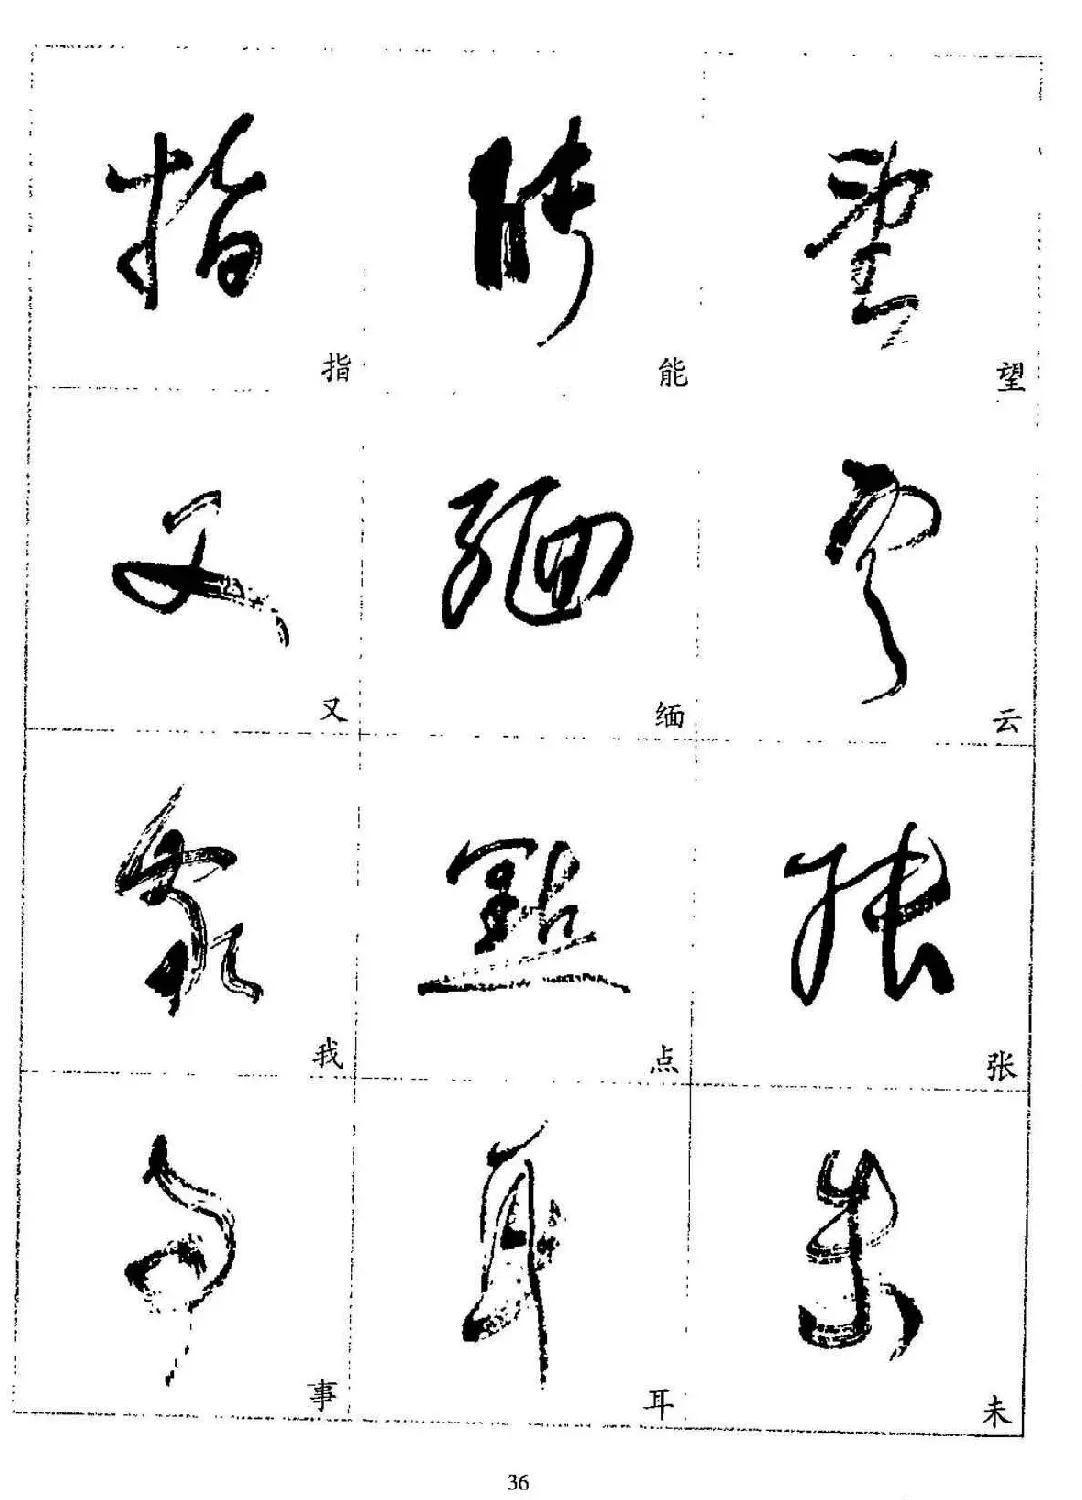 指 能 望
又 缅 云
我 点 张
事 耳 未
36